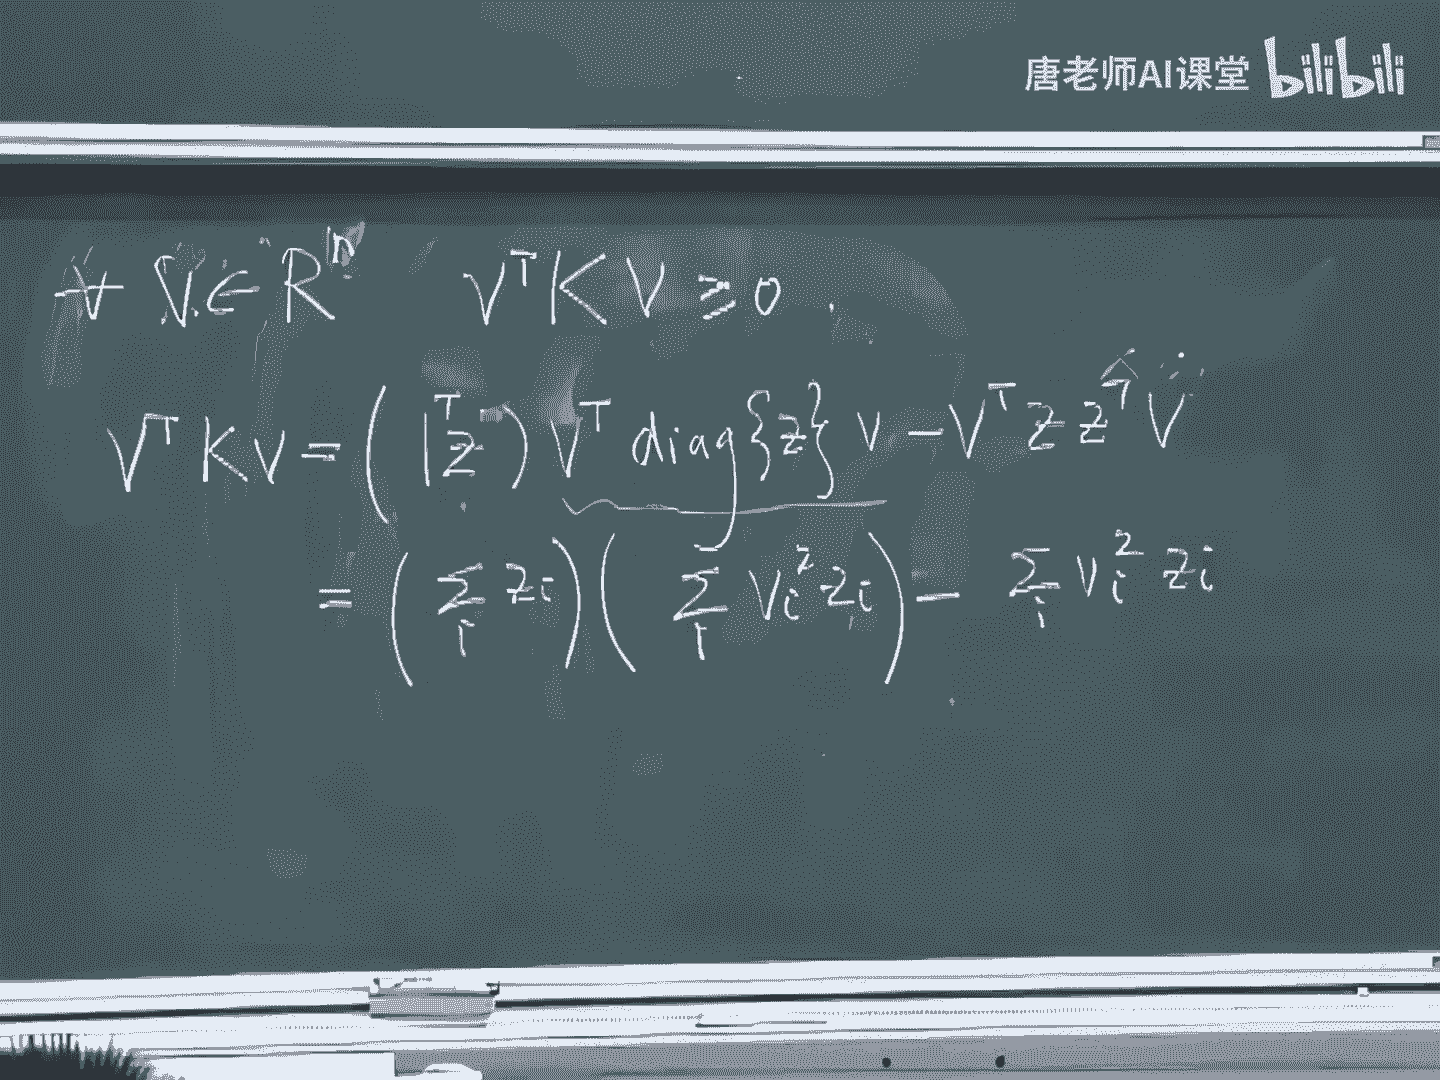 唐老师AI课堂 bilibili
∀ V ∈ Rⁿ Vᵀ K V ≥ 0
Vᵀ K V = (1ᵀz) Vᵀ diag{z} V − Vᵀ z zᵀ V
= (∑ᵢ zᵢ)(∑ᵢ Vᵢ² zᵢ) − ∑ᵢ Vᵢ² zᵢ